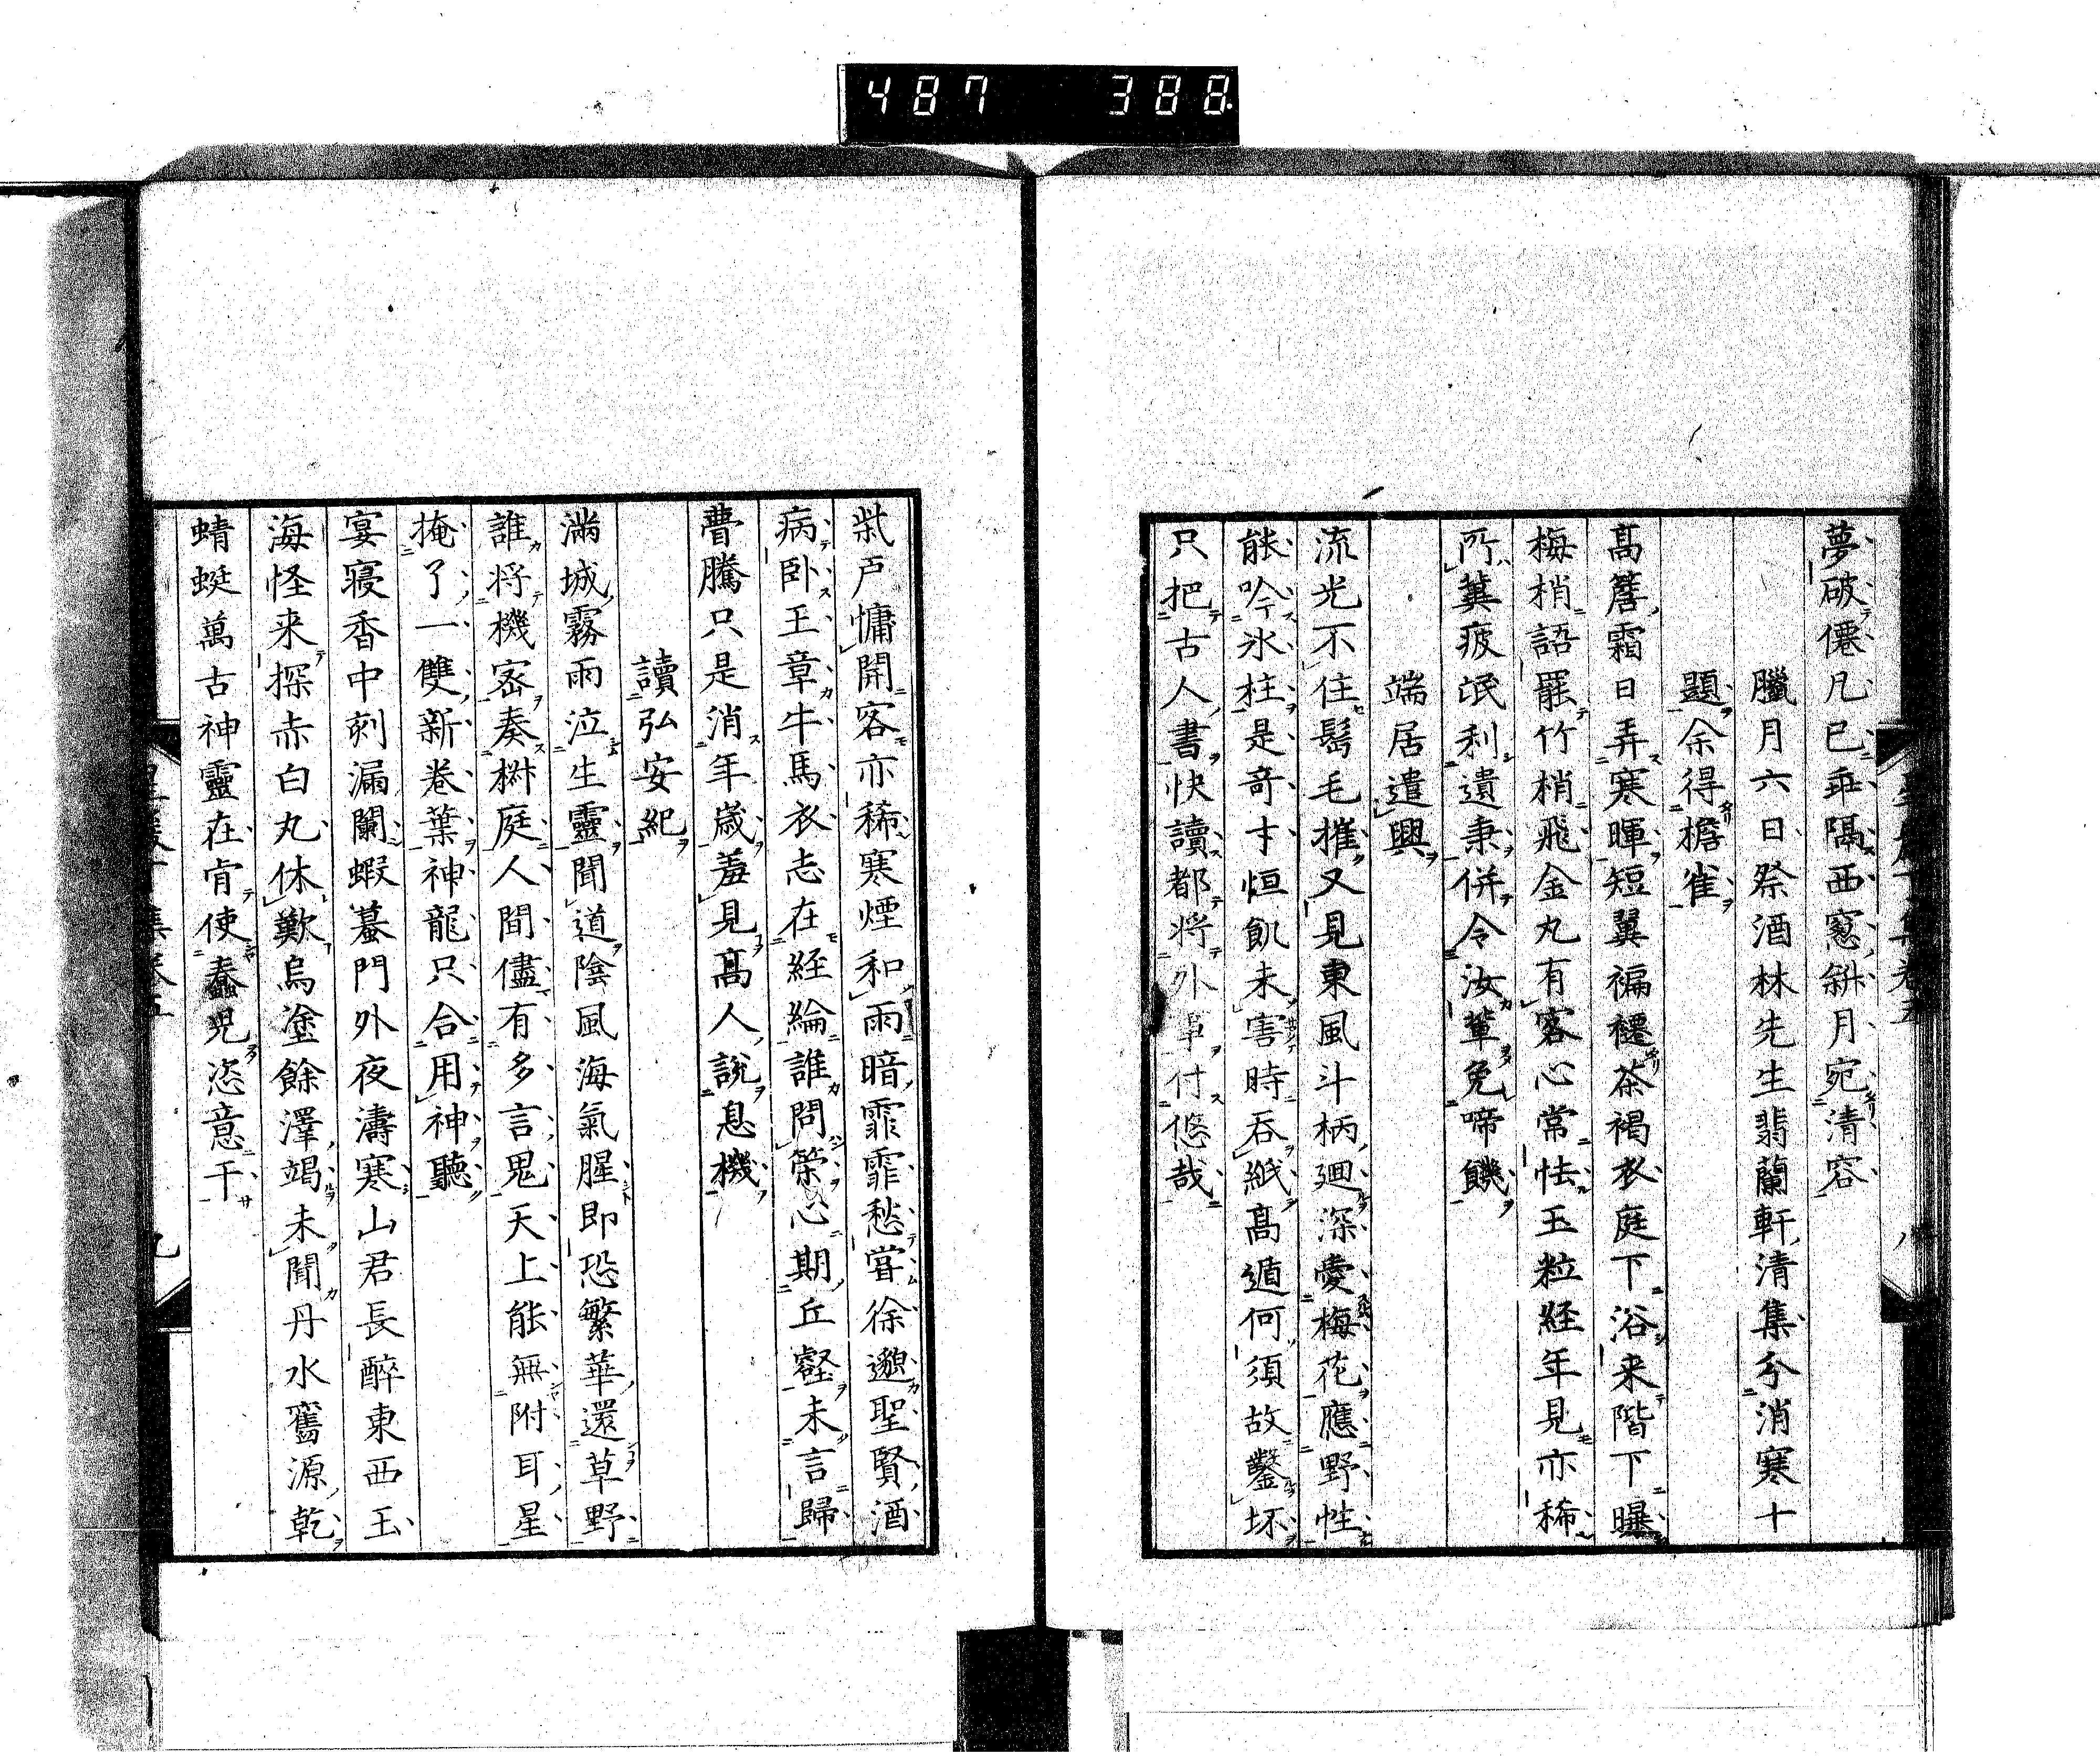 487 388
夢破僊凡已乖隔西窓斜月宛清容
臘月六日祭酒林先生翡蘭軒清集分消寒十
題余得檐雀
髙簷霜日弄寒暉短翼褊褼茶褐衣庭下浴来階下曝
梅梢語罷竹梢飛金丸有客心常怯玉粒経年見亦稀
所冀疲氓利遺秉併令汝輩免啼饑
端居遣興
流光不住髩毛摧又見東風斗柄廻深愛梅花應野性
能吟氷柱是奇才恒飢未害時呑紙髙遁何須故鑿坏
只把古人書快讀都将外事付悠哉
柴戸慵開客亦稀寒煙和雨暗霏霏愁甞徐邈聖賢酒
病卧王章牛馬衣志在経綸誰問榮心期丘壑未言歸
瞢騰只是消年歳羞見髙人説息機
讀弘安紀
滿城霧雨泣生靈聞道陰風海氣腥即恐繁華還草野
誰将機宻奏楓庭人間儘有多言鬼天上能無附耳星
掩了一雙新巻葉神龍只合用神聽
宴寝香中刺漏闌蝦蟇門外夜濤寒山君長醉東西玉
海怪来探赤白丸休歎烏塗餘澤竭未聞丹水舊源乾
蜻蜓萬古神靈在肯使蠢兇恣意干